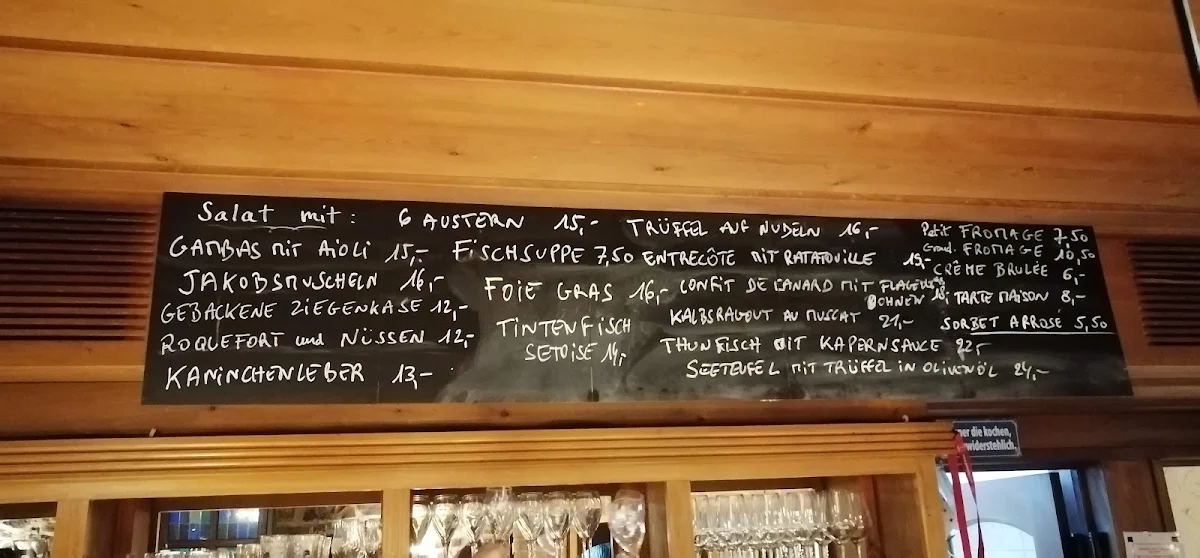 Salat mit:
GAMBAS MIT AIOLI 15,-
JAKOBSMUSCHELN 16,-
GEBACKENE ZIEGENKÄSE 12,-
ROQUEFORT und NÜSSEN 12,-
KANINCHENLEBER 13,-
6 AUSTERN 15,-
FISCHSUPPE 7,50
FOIE GRAS 16,-
TINTENFISCH
SETOISE 14,-
TRÜFFEL AUF NUDELN 16,-
ENTRECÔTE MIT RATATOUILLE 19,-
CONFIT DE CANARD MIT
BOHNEN
KALBSRAGOUT AU MUSCAT 21,-
THUNFISCH MIT KAPERNSAUCE 22,-
SEETEUFEL MIT TRÜFFEL IN OLIVENÖL 24,-
Petit FROMAGE 7,50
Grand. FROMAGE 10,50
CRÊME BRULÉE 6,-
TARTE MAISON 8,-
SORBET ARROSÉ 5,50
die kochen,
widerstehlich.